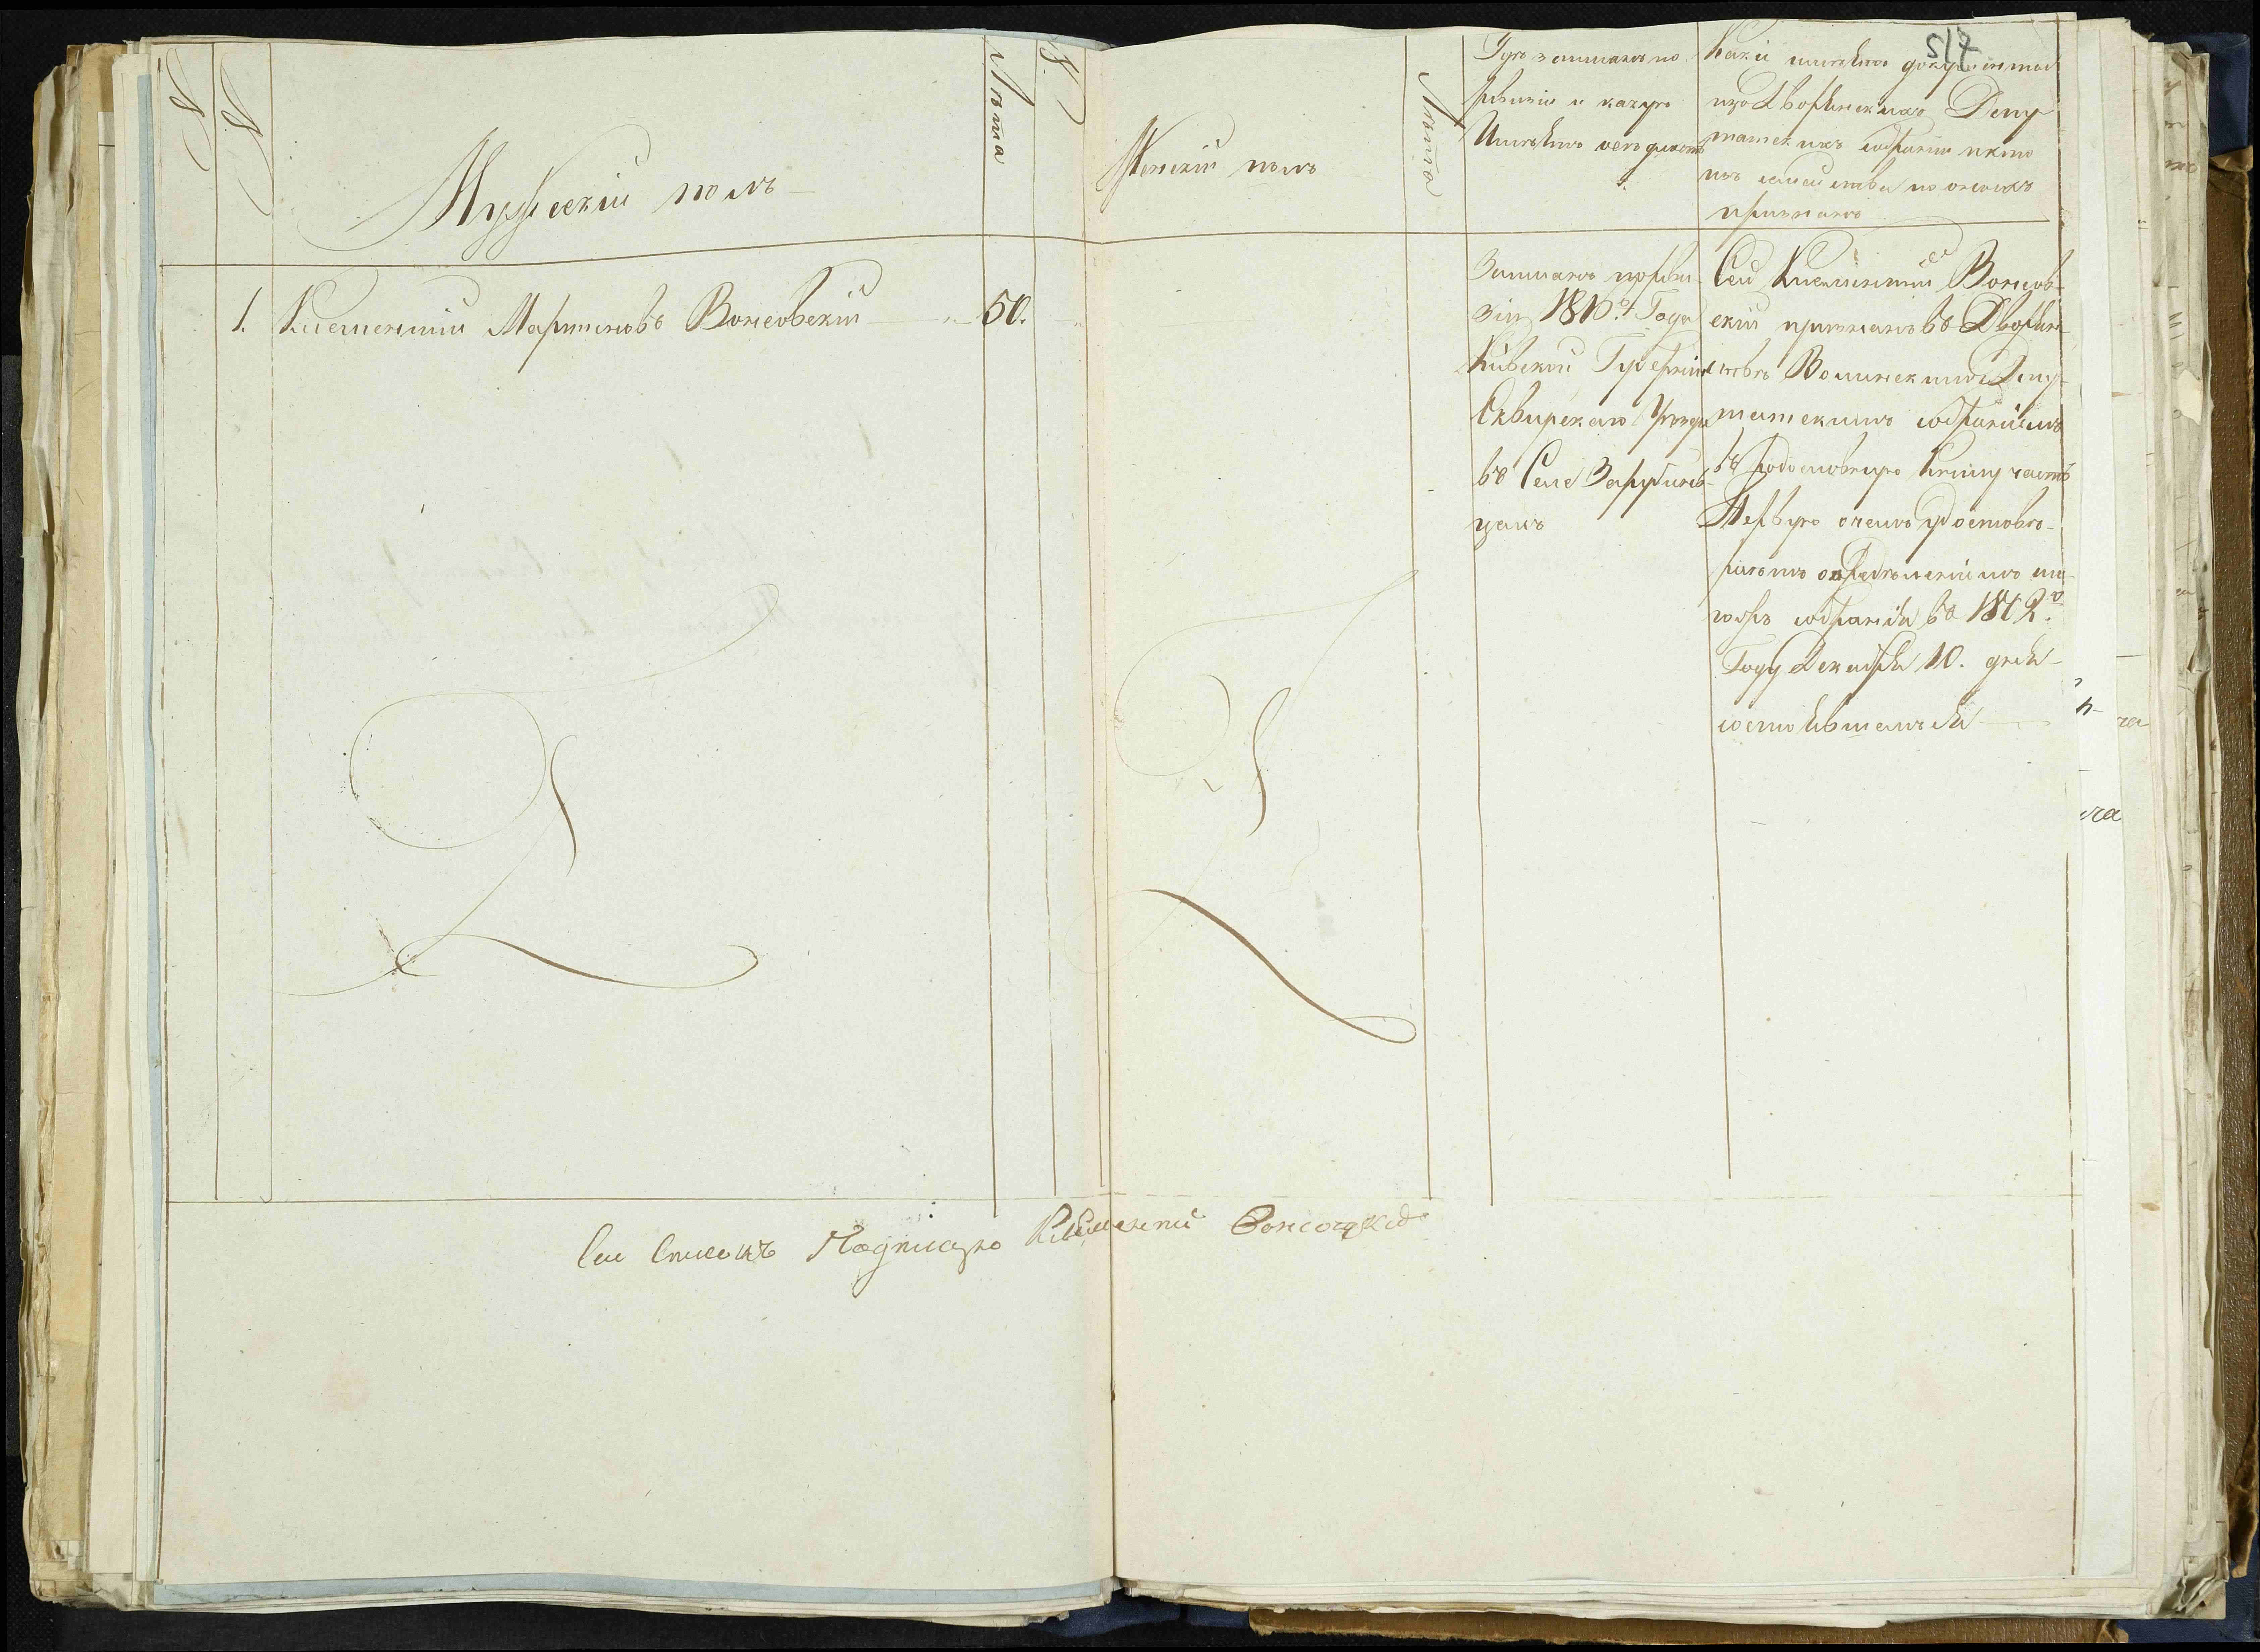 517
Мужескій полъ
Лѣта
Женскій полъ
Лѣта
Гдѣ записанъ по
ревизіи и какую
имѣетъ осѣдлость
Какіе имѣетъ документы
изъ Дворянскихъ Депу
татскихъ собраній и кто
изъ семейства по онымъ
признанъ
1. Клементій Мартиновъ Вонсовскій 50.
Записанъ по реви-
зіи 181 Года
Кіевской Губерніи
Сквирскаго Уѣзда
въ Селе Зарубин-
цахъ
Сей Клементій Вонсов-
скій признанъ въ Дворян-
ствѣ Волинскимъ Депу-
татскимъ собраніемъ
въ родословную Книгу часть
Первую о чемъ удостовѣ-
ряетъ опредѣленіемъ
собранія въ 1802го
Году Декабря 10. дня
состоявшемся
Сей Списокъ Подписую Клементій Вонсовскій